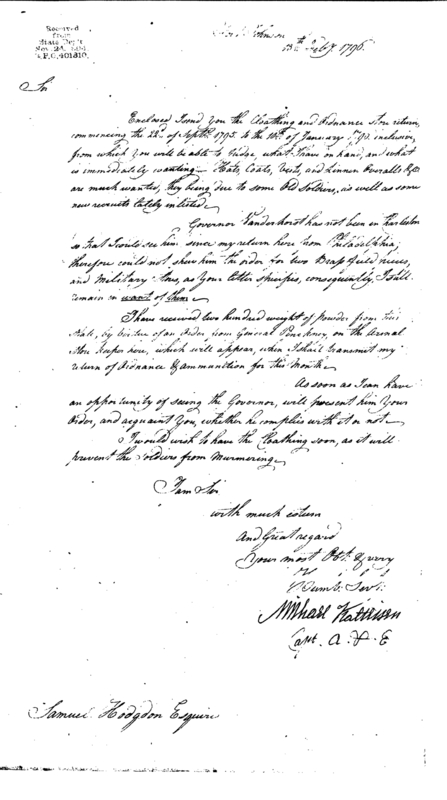 Received
from
State Dep't
Fort Johnson
13th Feby. 1796.
Sir
Enclosed I send you the Cloathing and Ordnance Store return,
commencing the 22d. of Septbr. 1795 to the of January 1796 inclusive,
from which you will be able to Judge, what I have on hand, and what
is immediately wanting — Hats, Coats, Vests, and Linnen Overalls &c
are much wanted, they being due to some Old Soldiers, as well as some
new recruits lately inlisted
Governor Vanderhorst has not been in Charleston
so that I could see him since my return here from Philadelphia,
therefore could not shew him the order for two Brass field pieces,
and Military Stores, as your letter specifies, consequently, I still
remain in want of them
I have received two hundred weight of powder from this
State, by virtue of an Order from General Pinckney, on the Arsenal
Store keeper here, which will appear, when I shall transmit my
return of Ordnance & ammunition for this Month
As soon as I can have
an opportunity of seeing the Governor, will present him your
Order, and acquaint you, whether he complies with it or not
I would wish to have the Cloathing soon, as it will
prevent the Soldiers from Murmering
I am Sir
with much esteem
and Great regard
Your most Obt. & very
Humb. Servt.
Michael Kalteisen
Capt. A & E
Samuel Hodgdon Esquire